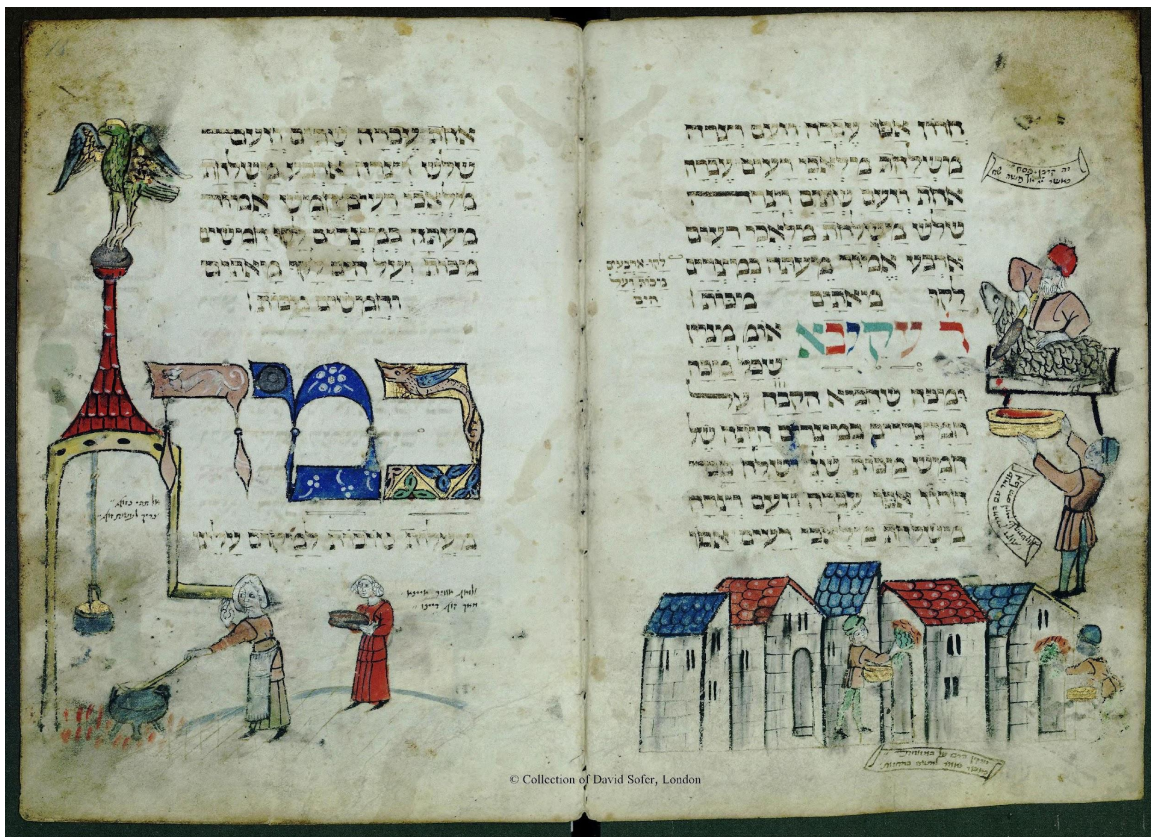 חרון אפו עברה וזעם וצרה
משלחת מלאכי רעים עברה
אחת וזעם שתים וצרה
שלש משלחת מלאכי רעים
ארבע אמור מעתה במצרים
לקו ארבעים
מכות ועל
הים
לקו מאתים מכות
ר עקיבא אומ מנין
שכל מכה
ומכה שהביא הקבה על
המצריים במצרים היתה של
חמש מכות שנ ישלח בם
חרון אפו עברה וזעם וצרה
משלחת מלאכי רעים אפו
זה קרבן פסח
אחת עברה שתים וזעם
שלש וצרה ארבע משלחת
מלאכי רעים חמש אמור
מעתה במצרים לקו חמשים
מכות ועל הים לקו מאתים
וחמשים מכות
כמה
מעלות טובות למקום עלינו
© Collection of David Sofer, London